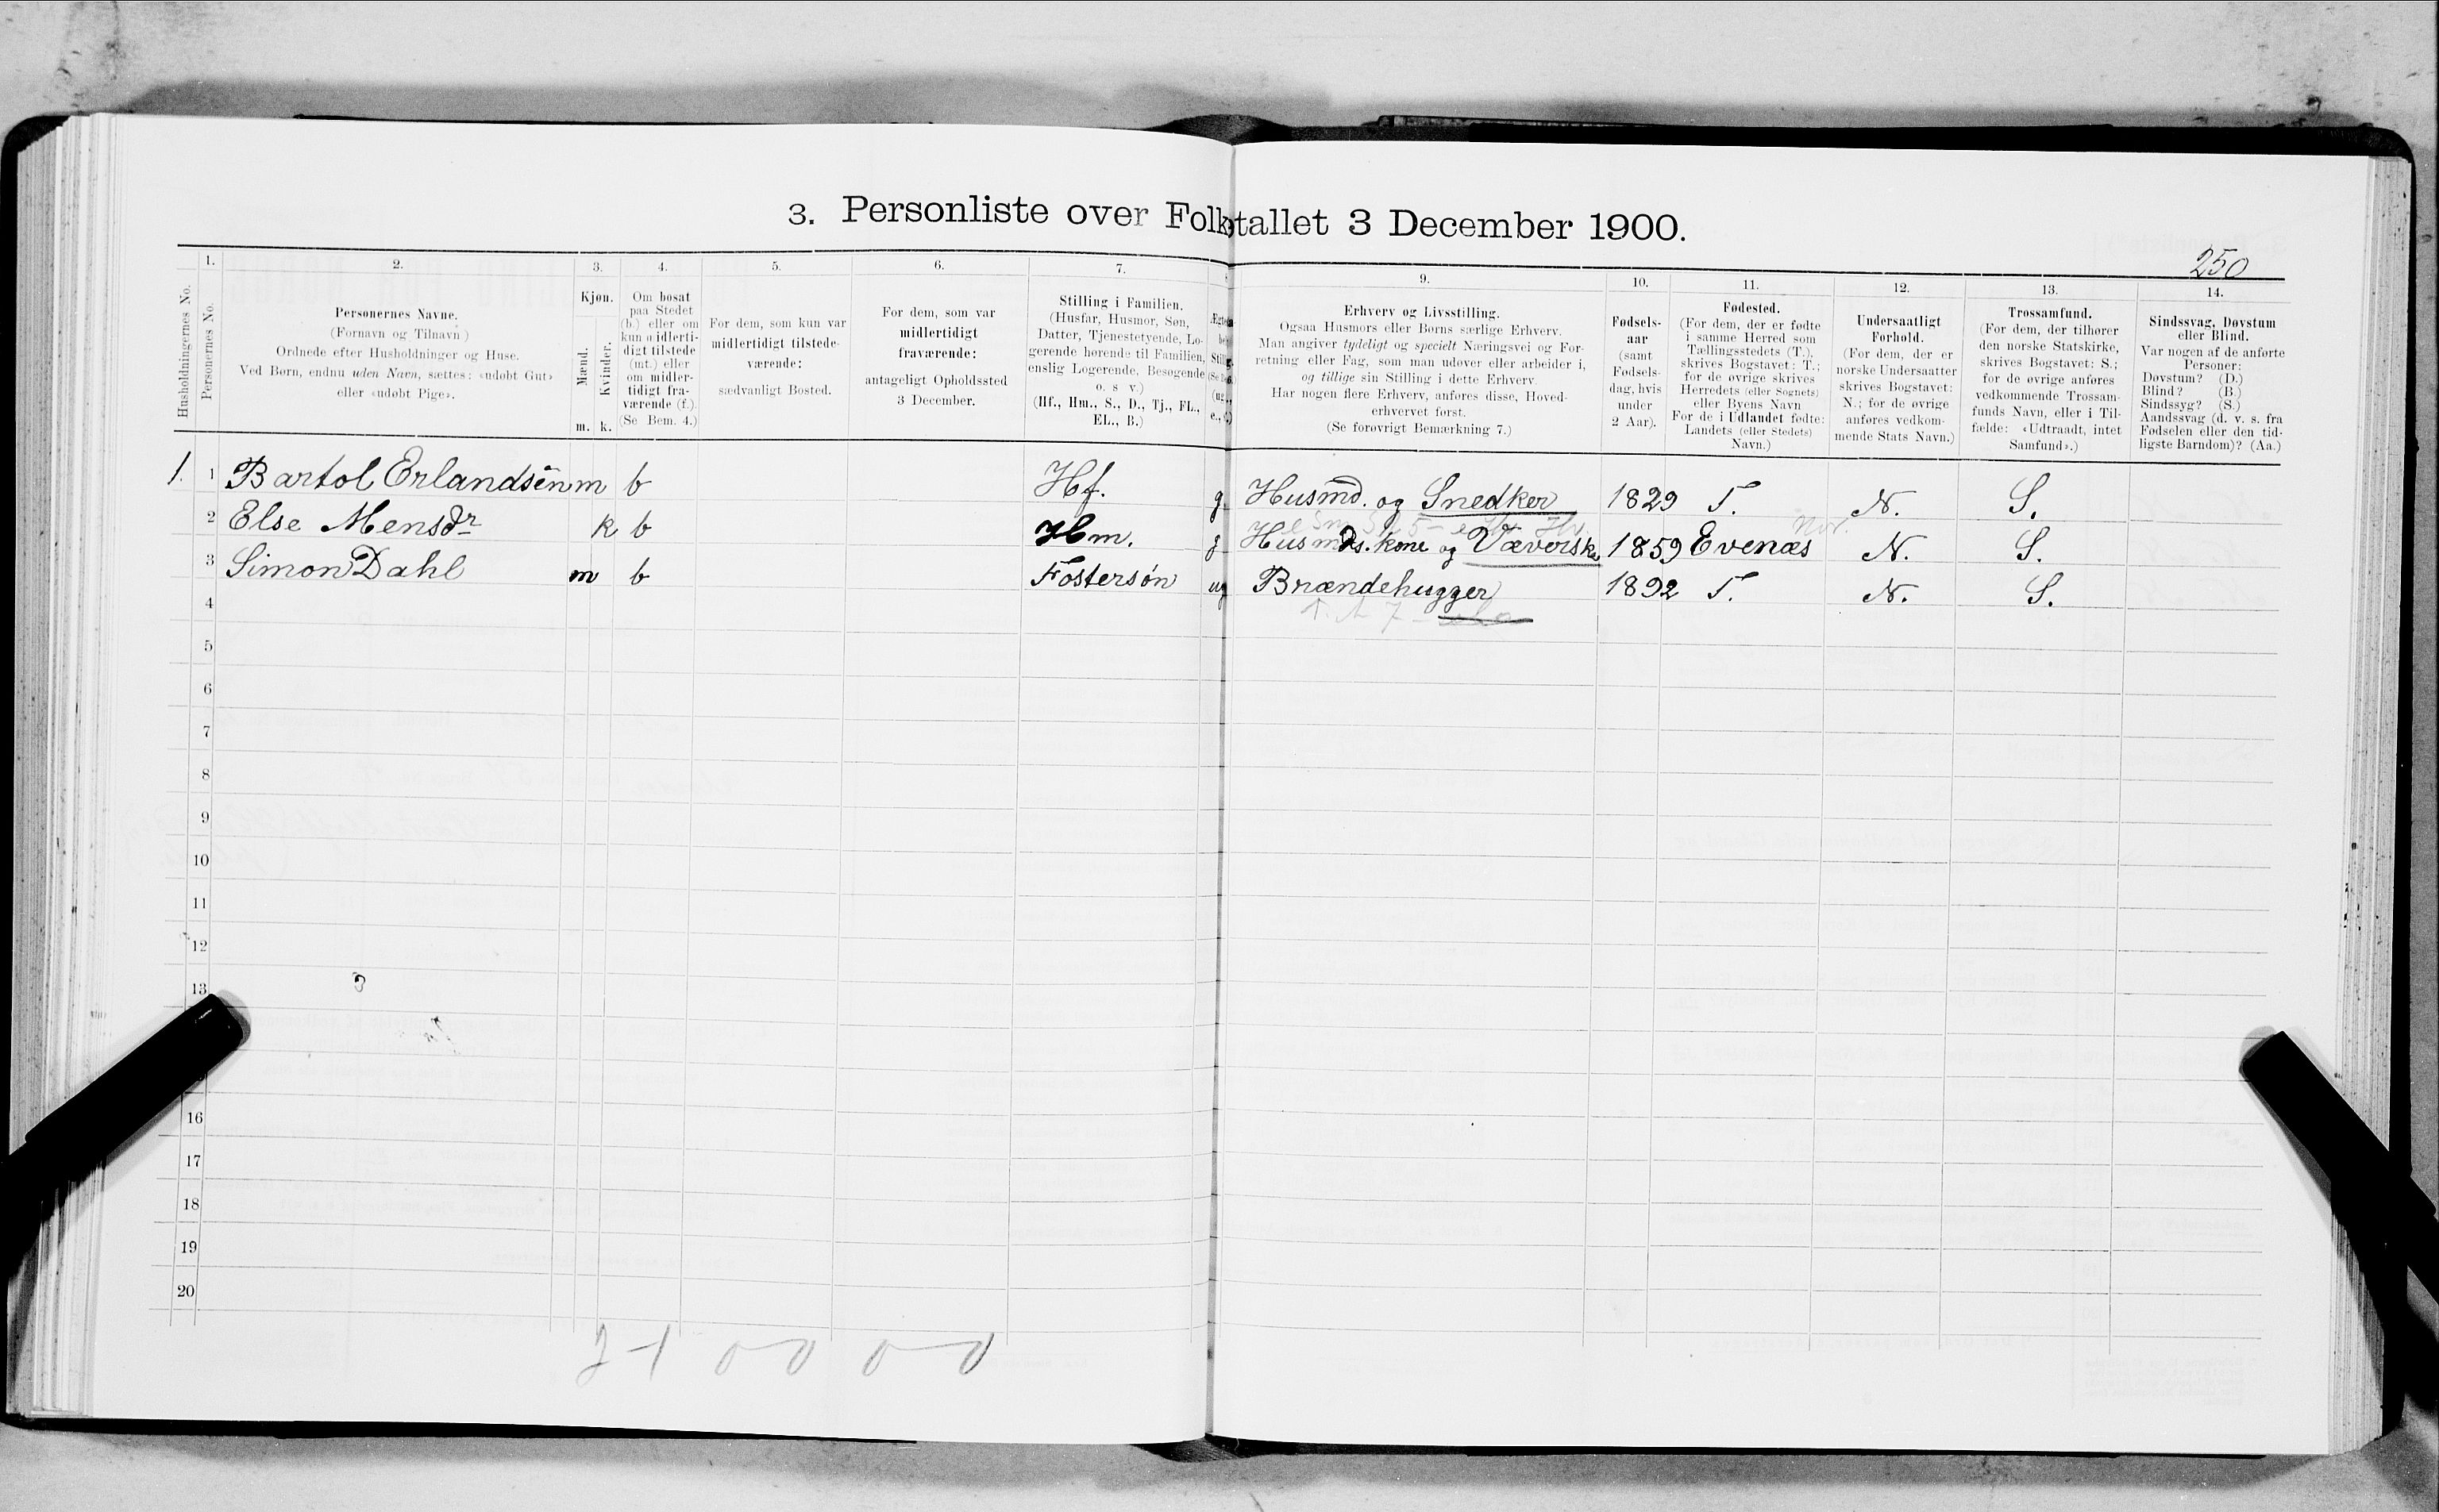 3. Personliste over Folketallet 3 December 1900.
250
1. 2. 3. 4. 5. 6. 7. 9. 10. 11. 12. 13. 14.
Husholdningernes No.
Personernes No.
Personernes Navne.
(Fornavn og Tilnavn)
Ordnede efter Husholdninger og Huse.
Ved Børn, endnu uden Navn, sættes: «udøbt Gut»
eller «udøbt Pige».
Kjøn.
Mænd.
Kvinder.
m. k.
Om bosat
paa Stedet
(b.) eller om
kun midlerti-
digt tilstede
(mt.) eller
om midler-
tidigt fra-
værende (f.).
(Se Bem. 4.)
For dem, som kun var
midlertidigt tilstede-
værende:
sædvanligt Bosted.
For dem, som var
midlertidigt
fraværende:
antageligt Opholdssted
3 December.
Stilling i Familien.
(Husfar, Husmor, Søn,
Datter, Tjenestetyende, Lo-
gerende hørende til Familien,
enslig Logerende, Besøgende
o. s v.)
(Hf., Hm., S., D., Tj., FL.,
EL., B.)
Erhverv og Livsstilling.
Ogsaa Husmors eller Børns særlige Erhverv.
Man angiver tydeligt og specielt Næringsvei og For-
retning eller Fag, som man udøver eller arbeider i,
og tillige sin Stilling i dette Erhverv.
Har nogen flere Erhverv, anføres disse, Hoved-
erhvervet først.
(Se forøvrigt Bemærkning 7.)
Fødsels-
aar
(samt
Fødsels-
dag, hvis
under
2 Aar).
Fødested.
(For dem, der er fødte
i samme Herred som
Tællingsstedets (T.),
skrives Bogstavet: T.;
for de øvrige skrives
Herredets (eller Sognets)
eller Byens Navn
For de i Udlandet fødte:
Landets (eller Stedets)
Navn.)
Undersaatligt
Forhold.
(For dem, der er
norske Undersaatter
skrives Bogstavet:
N.; for de øvrige
anføres vedkom-
mende Stats Navn.)
Trossamfund.
(For dem, der tilhører
den norske Statskirke,
skrives Bogstavet: S.;
for de øvrige anføres
vedkommende Trossam-
funds Navn, eller i Til-
fælde: «Udtraadt, intet
Samfund».)
Sindssvag, Døvstum
eller Blind.
Var nogen af de anførte
Personer:
Døvstum? (D.)
Blind? (B.)
Sindssyg? (S.)
Aandssvag (d. v. s. fra
Fødselen eller den tid-
ligste Barndom)? (Aa.)
1. 1 Bartol Erlandsen m b Hf. g Husmd. og Snedker 1829 T. N. S.
2 Else Mensdr k b Hm. g Husmds. kone og Væverske 1859 Evenæs N. S.
3 Simon Dahl m b Fostersøn ug Brændehugger 1892 T. N. S.
4
5
6
7
8
9
10
11
12
13
16
17
18
19
20